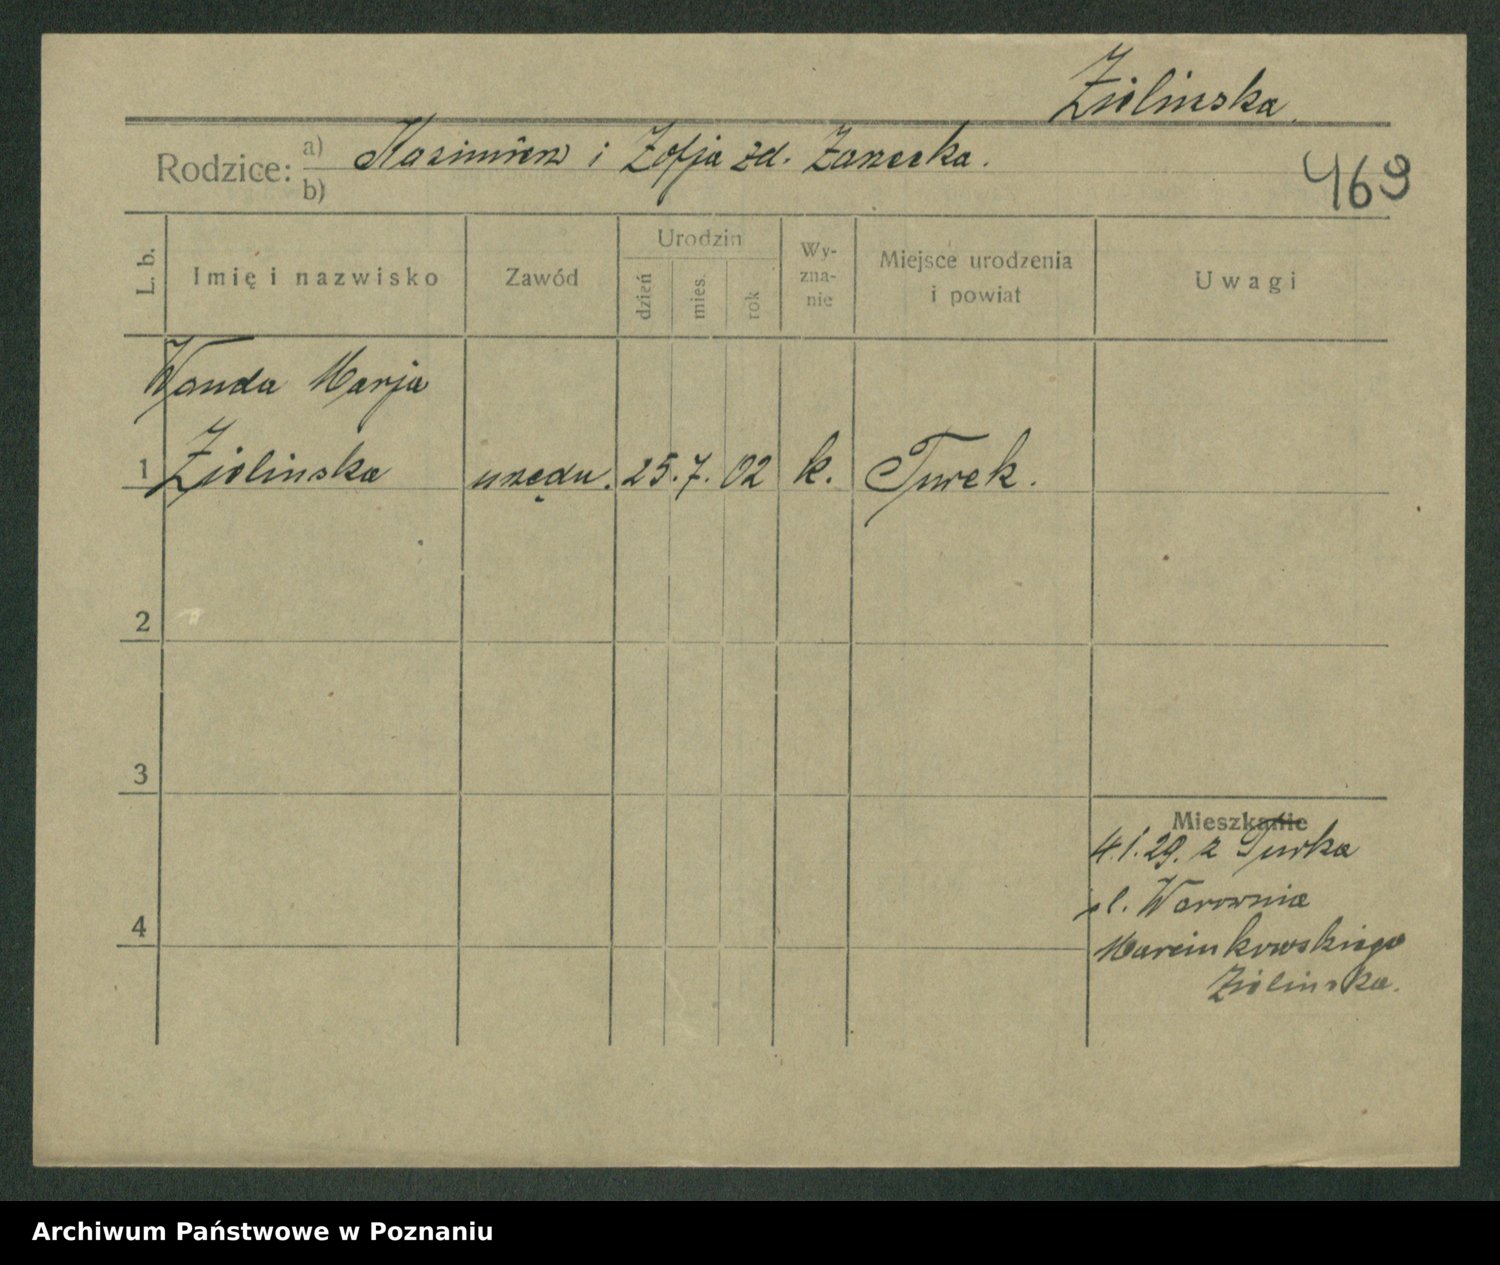 Zielinska
Rodzice: a) Kazimierz i Zofja zd. Zarecka.
b)
469
L. b. Imię i nazwisko Zawód Urodzin dzień mies. rok Wy-zna-nie Miejsce urodzenia i powiat Uwagi
Wanda Marja
1 Zielinska urzędn. 25. 7. 02 k. Turek.
2
3
Mieszkanie
4.1.29. z Turka
4
Marcinkowskiego
Zielinska.
Archiwum Państwowe w Poznaniu